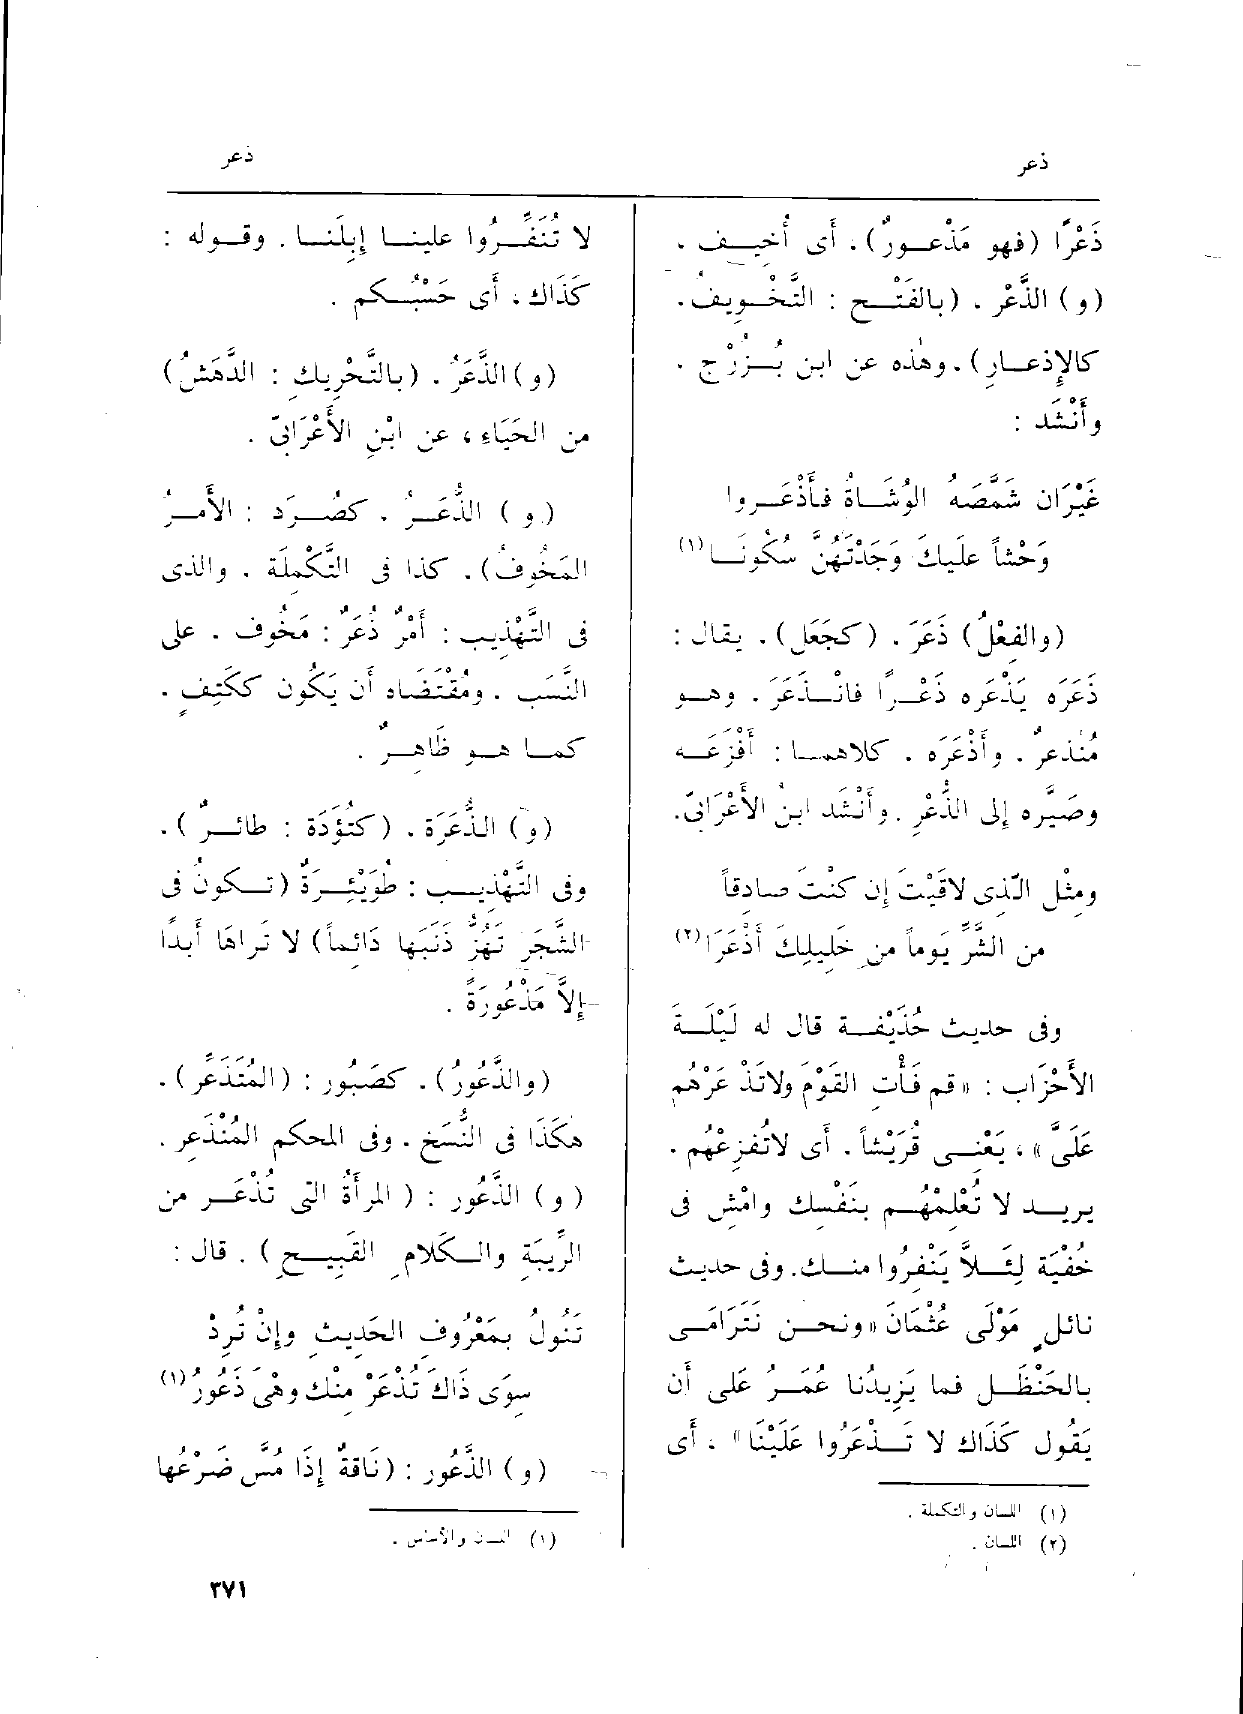 ذعر
ذعر
ذَعْرًا (فهو مَذْعــورٌ). أى أُخيــف .
(و) الذَّعْر . (بالفَتْــح : التَّخْــوِيف.
كالإِذعــارِ) . وهٰذه عن ابن بُــزُرْج .
وأَنْشَد :
غَيْرَان شَمَّصَهُ الوُشَــاةُ فأَذْعَــروا
وَحْشاً عليكَ وَجَدْتَهُنَّ سكُونَــا (١)
(والفِعْلُ) ذَعَرَ . (كجَعَل) . يقال :
ذَعَرَه يَذْعَره ذَعْــرًا فانْــذَعَرَ . وهــو
مُنْذعرٌ . وأَذْعَرَه . كلاهمــا : أَفْزَعَــه
وصَيَّره إلى الذُّعْرِ . وأَنْشَد ابنُ الأَعْرَابىّ.
ومثْلِ الّذى لاقَيْتَ إِن كنْتَ صادقاً
من الشَّرِّ يَوماً من خَلِيلِكَ أَذْعَرَا (٢)
وفى حديث حُذَيْفــة قال له لَيْلَــةَ
الأَحْزَاب : « قم فَأْتِ القَوْمَ ولاتَذْعَرْهم
عَلَىَّ » ، يَعْنــى قُرَيْشاً . أَى لاتُفزِعْهم .
يريــد لا تُعْلِمْهُــم بنَفْسِك وامْشِ فى
خُفْيَة لئَــلاَّ يَنْفِرُوا منــك. وفى حديث
نائلٍ مَوْلَى عُثْمَانَ « ونحــن نَتَرَامَــى
بالحَنْظَــل فما يَزِيدُنا عُمَــرُ عَلَى أَن
يَقُول كَذَاك لا تَــذْعَرُوا عَلَيْنَا » ، أَى
(١) اللسان والتكملة .
(٢) اللسان .
لا تُنَفِّــرُوا علينــا إِبِلَنــا . وقــوله :
كَذَاك ، أَى حَسْبُــكم .
(و) الذَّعَرُ . (بالتَّحْرِيك : الدَّهَشُ)
من الحَيَاء ، عن ابْنِ الأَعْرَابىّ .
(و) الذُّعَــرُ . كصُــرَد : الأَمــرُ
المَخُوفُ) . كذا فى التَّكْملَة . والذى
فى التَّهْذِيب : أَمْرٌ ذُعَرٌ : مَخُوف . على
النَّسَب . ومُقْتَضَاه أَن يَكُون ككَتِفٍ .
كمــا هــو ظَاهــرٌ .
(و) الذُّعَرَة . (كتُؤَدَة : طائــرٌ) .
وفى التَّهْذيــب : طُوَيْئِــرَةٌ (تــكونُ فى
الشَّجَر تَهُزُّ ذَنَبَها دَائماً) لا تَراهَا أَبدًا
إِلاَّ مَذْعُورَةً .
(والذَّعُورُ) . كصَبُور : (المُتَذَعِّر) .
هكَذَا فى النُّسَخ . وفى المحكم المُنْذَعِر .
(و) الذَّعُور : (المرأَةُ التى تُذْعَــر من
الرِّيبَةِ والــكَلامِ القَبِيــحِ) . قال :
تَنُولُ بمَعْرُوفِ الحَدِيثِ وإِنْ تُرِدْ
سِوَى ذَاكَ تُذْعَرْ مِنْك وهْىَ ذَعُورُ (١)
(و) الذَّعُور : (نَاقةٌ إِذَا مُسَّ ضَرْعُها
(١) اللسان والأساس .
٣٧١